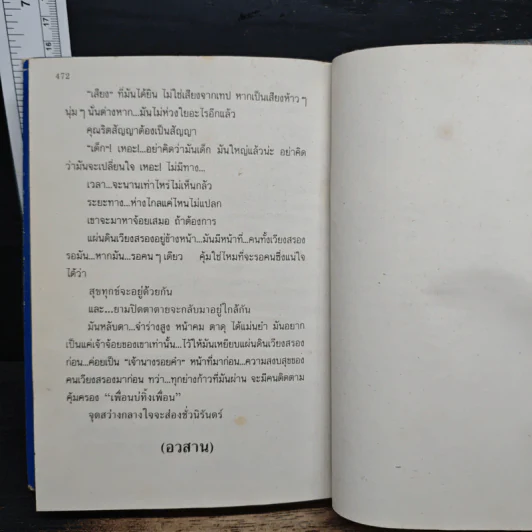 472
"เสียง" ที่มันได้ยิน ไม่ใช่เสียงจากเทป หากเป็นเสียงห้าวๆ
นุ่มๆ นั่นต่างหาก...มันไม่ห่วงใยอะไรอีกแล้ว
คุณริตสัญญาต้องเป็นสัญญา
"เด็กๆ เหอะ!...อย่าคิดว่ามันเด็ก มันใหญ่แล้วน่ะ อย่าคิด
ว่ามันจะเปลี่ยนใจ เหอะ! ไม่มีทาง...
เวลา...จะนานเท่าไหร่ไม่เห็นกลัว
ระยะทาง...ห่างไกลแค่ไหนไม่แปลก
เขาจะมาหาจ้อยเสมอ ถ้าต้องการ
แผ่นดินเวียงสรองอยู่ข้างหน้า...มันมีหน้าที่...คนทั้งเวียงสรอง
รอมัน...หากมัน...รอคนๆ เดียว คุ้มใช่ไหมที่จะรอคนซึ่งแน่ใจ
ได้ว่า
สุขทุกข์จะอยู่ด้วยกัน
และ...ยามปิดตาตายจะกลับมาอยู่ใกล้กัน
มันหลับตา...จำร่างสูง หน้าคม ตาดุ ได้แม่นยำ มันอยาก
เป็นแค่เจ้าจ้อยของเขาเท่านั้น...ไว้ให้มันเหยียบแผ่นดินเวียงสรอง
ก่อน...ค่อยเป็น "เจ้านางรอยคำ" หน้าที่มาก่อน...ความสงบสุขของ
คนเวียงสรองมาก่อน ทว่า...ทุกย่างก้าวที่มันผ่าน จะมีคนติดตาม
คุ้มครอง "เพื่อนบ่ทิ้งเพื่อน"
จุดสว่างกลางใจจะส่องชั่วนิรันดร์
(อวสาน)
7
17
16